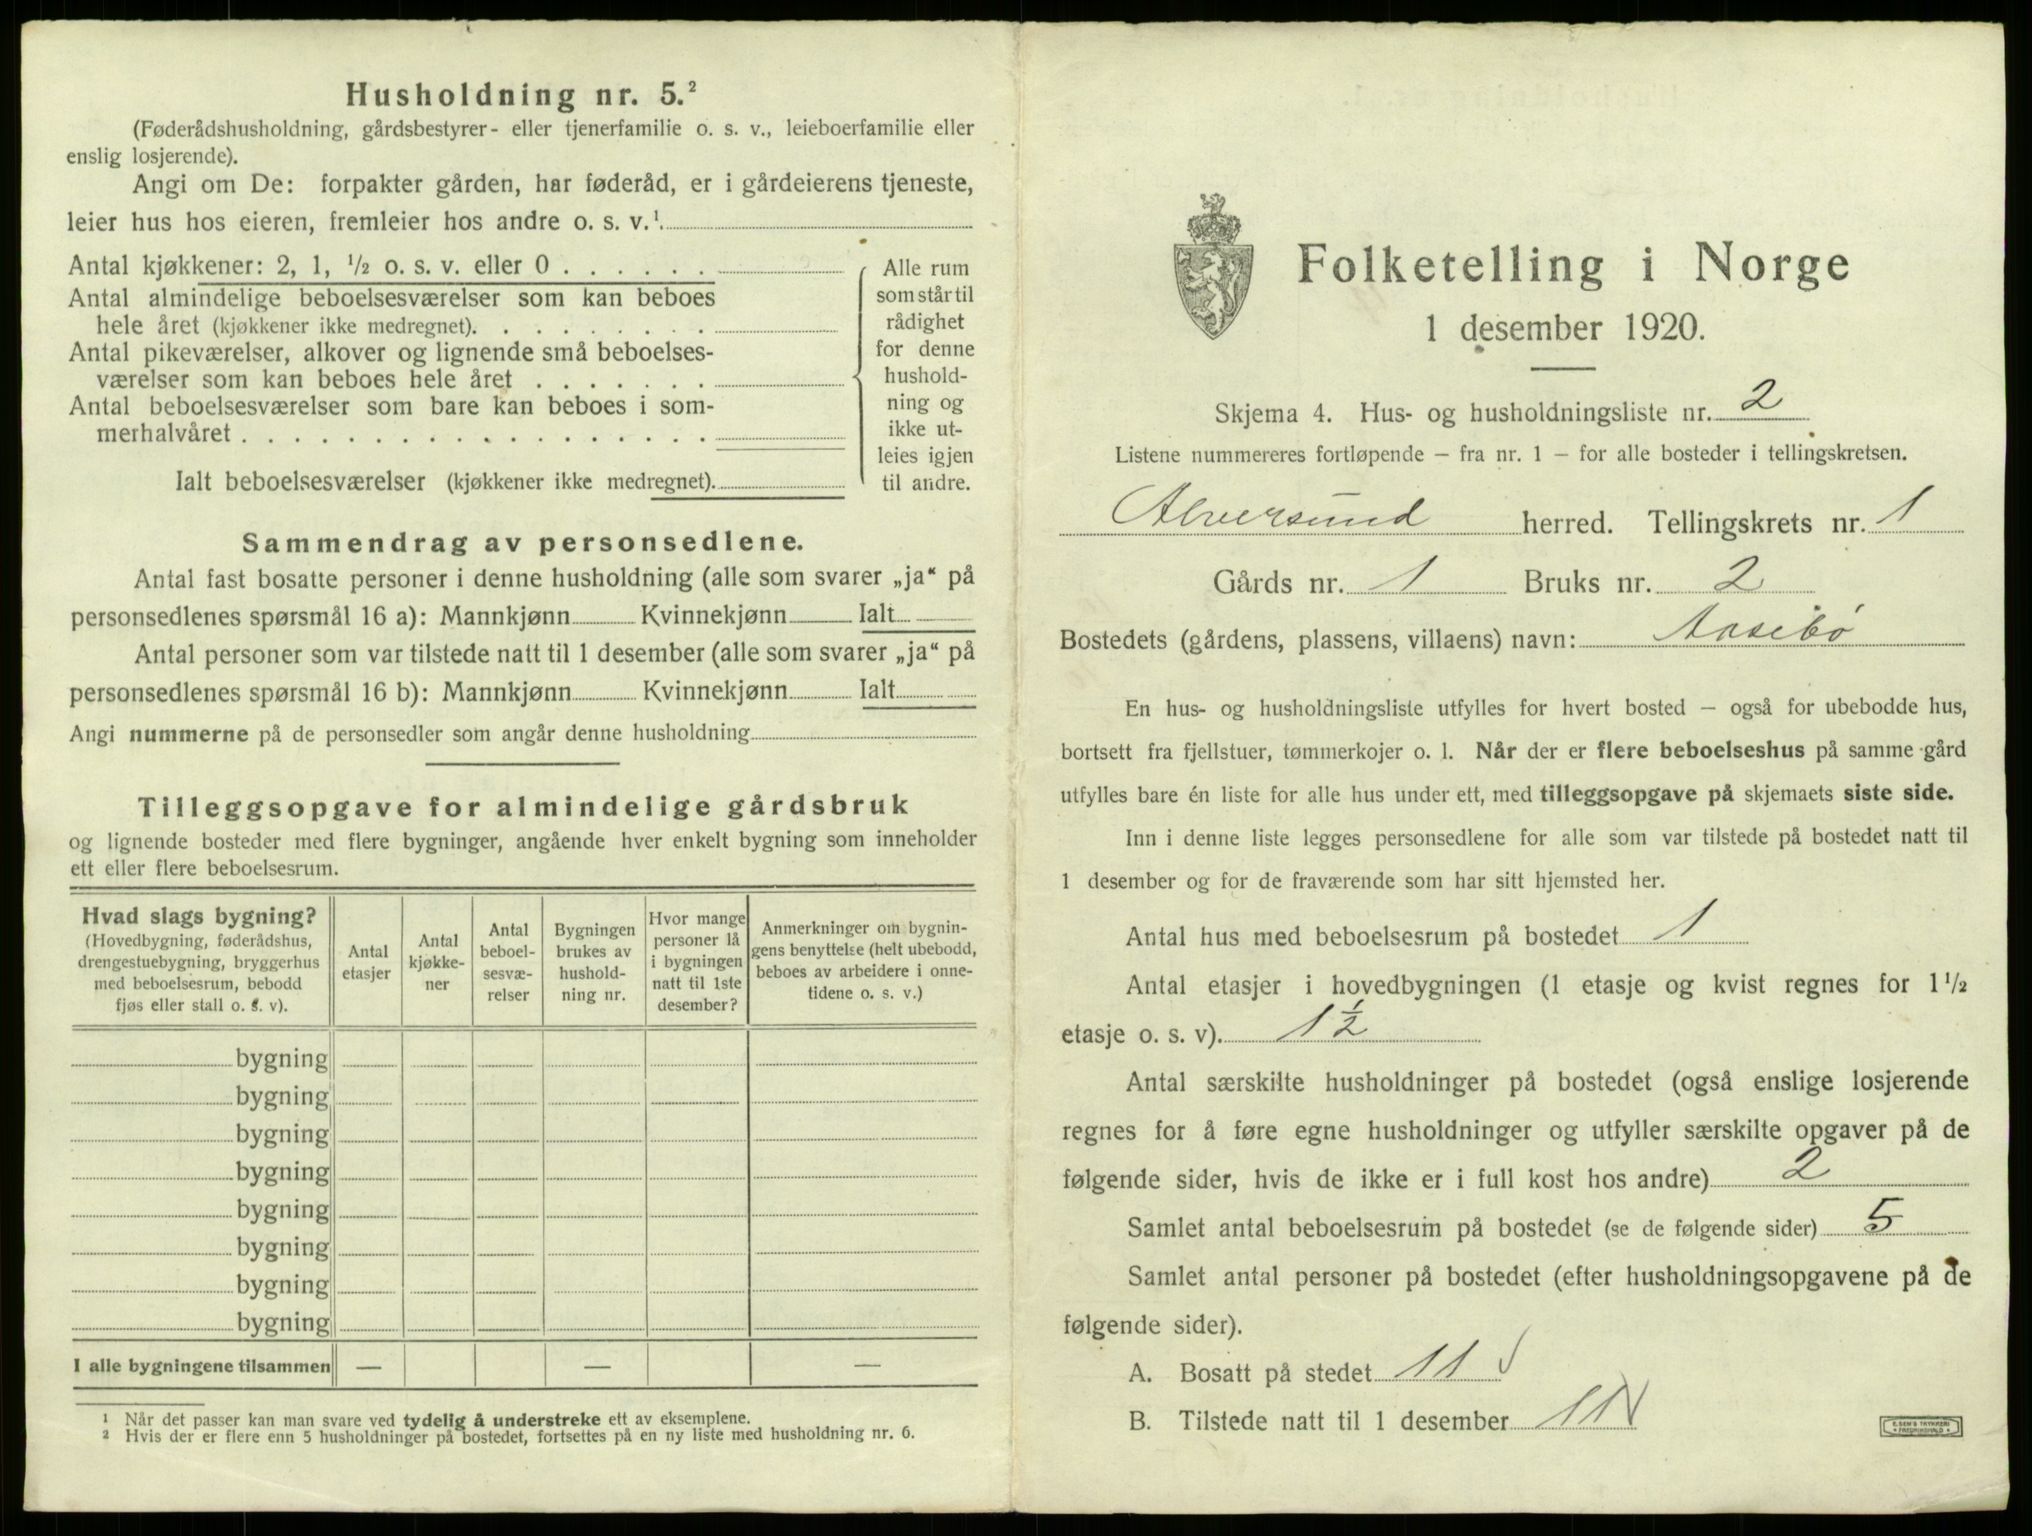 Husholdning nr. 5.²
(Føderådshusholdning, gårdsbestyrer- eller tjenerfamilie o. s. v., leieboerfamilie eller
enslig losjerende).
Angi om De: forpakter gården, har føderåd, er i gårdeierens tjeneste,
leier hus hos eieren, fremleier hos andre o. s. v.¹.
Antal kjøkkener: 2, 1, ½ o. s. v. eller 0 . . . . . .
Antal almindelige beboelsesværelser som kan beboes
hele året (kjøkkener ikke medregnet). . . . . . . . .
Antal pikeværelser, alkover og lignende små beboelses-
værelser som kan beboes hele året . . . . . . .
Antal beboelsesværelser som bare kan beboes i som-
merhalvåret . . . . . . . . . . . . . . . . . .
Ialt beboelsesværelser (kjøkkener ikke medregnet).
Alle rum
som står til
rådighet
for denne
hushold-
ning og
ikke ut-
leies igjen
til andre.
Sammendrag av personsedlene.
Antal fast bosatte personer i denne husholdning (alle som svarer „ja“ på
personsedlenes spørsmål 16 a): Mannkjønn Kvinnekjønn Ialt
Antal personer som var tilstede natt til 1 desember (alle som svarer „ja“ på
personsedlenes spørsmål 16 b): Mannkjønn Kvinnekjønn Ialt
Angi nummerne på de personsedler som angår denne husholdning
Tilleggsopgave for almindelige gårdsbruk
og lignende bosteder med flere bygninger, angående hver enkelt bygning som inneholder
ett eller flere beboelsesrum.
Hvad slags bygning?
(Hovedbygning, føderådshus,
drengestuebygning, bryggerhus
med beboelsesrum, bebodd
fjøs eller stall o. s. v).
Antal
etasjer
Antal
kjøkke-
ner
Antal
beboel-
sesvæ-
relser
Bygningen
brukes av
hushold-
ning nr.
Hvor mange
personer lå
i bygningen
natt til 1ste
desember?
Anmerkninger om bygnin-
gens benyttelse (helt ubebodd,
beboes av arbeidere i onne-
tidene o. s. v.)
bygning
bygning
bygning
bygning
bygning
bygning
bygning
bygning
I alle bygningene tilsammen — — —
1 Når det passer kan man svare ved tydelig å understreke ett av eksemplene.
2 Hvis der er flere enn 5 husholdninger på bostedet, fortsettes på en ny liste med husholdning nr. 6.
Folketelling i Norge
1 desember 1920.
Skjema 4. Hus- og husholdningsliste nr. 2
Listene nummereres fortløpende – fra nr. 1 – for alle bosteder i tellingskretsen.
Alversund herred. Tellingskrets nr. 1
Gårds nr. 1 Bruks nr. 2
Bostedets (gårdens, plassens, villaens) navn: Aasebø
En hus- og husholdningsliste utfylles for hvert bosted – også for ubebodde hus,
bortsett fra fjellstuer, tømmerkojer o. l. Når der er flere beboelseshus på samme gård
utfylles bare én liste for alle hus under ett, med tilleggsopgave på skjemaets siste side.
Inn i denne liste legges personsedlene for alle som var tilstede på bostedet natt til
1 desember og for de fraværende som har sitt hjemsted her.
Antal hus med beboelsesrum på bostedet 1
Antal etasjer i hovedbygningen (1 etasje og kvist regnes for 1 ½
etasje o. s. v). 1 ½
Antal særskilte husholdninger på bostedet (også enslige losjerende
regnes for å føre egne husholdninger og utfyller særskilte opgaver på de
følgende sider, hvis de ikke er i full kost hos andre) 2
Samlet antal beboelsesrum på bostedet (se de følgende sider) 5
Samlet antal personer på bostedet (efter husholdningsopgavene på de
følgende sider).
A. Bosatt på stedet 11 √
B. Tilstede natt til 1 desember 11 √
E. SEM'S TRYKKERI
FREDRIKSHALD